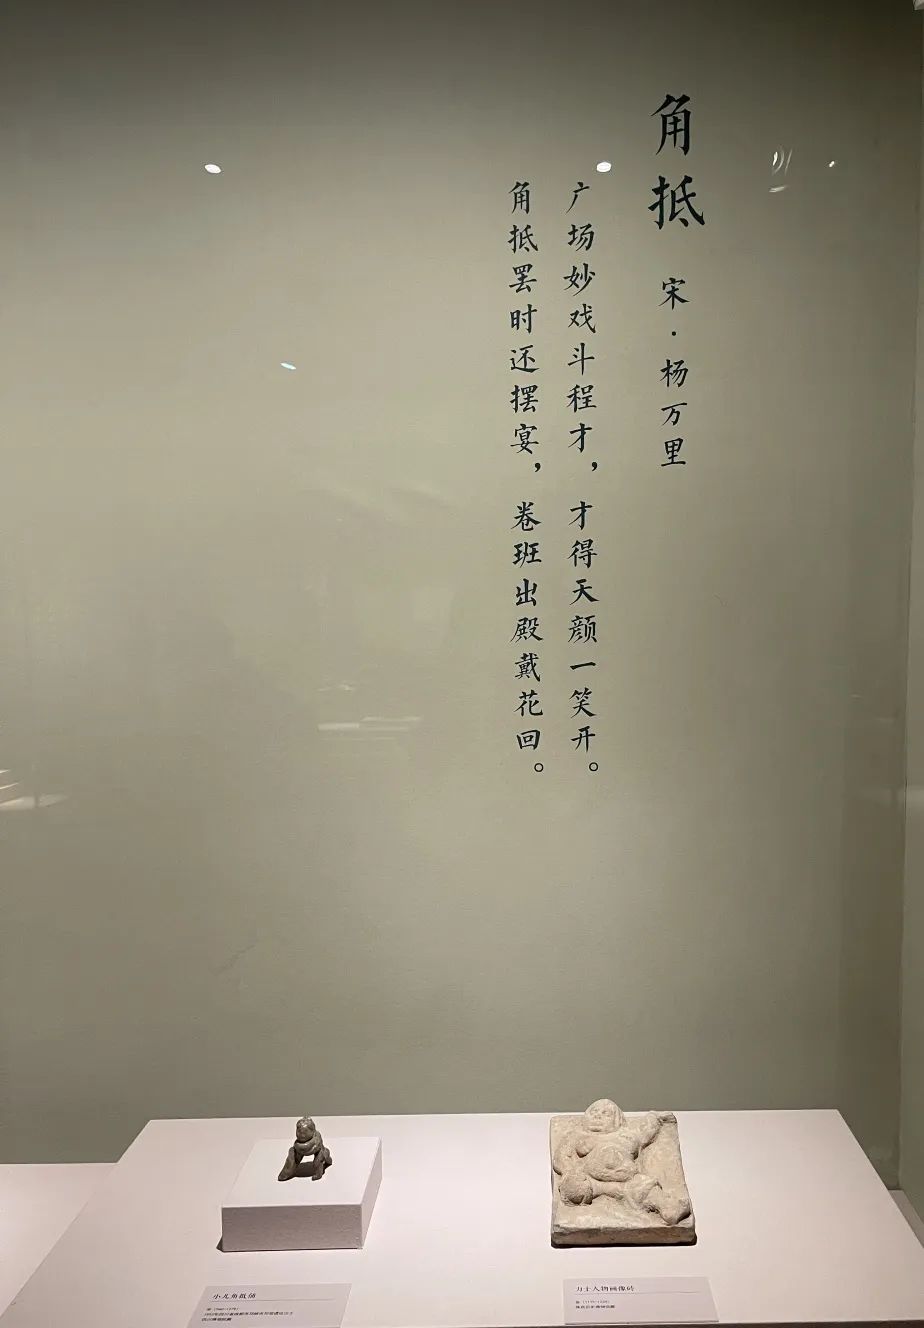 角抵 宋·杨万里
广场妙戏斗程才，才得天颜一笑开。
角抵罢时还摆宴，卷班出殿戴花回。
小儿角抵俑
力士人物画像砖